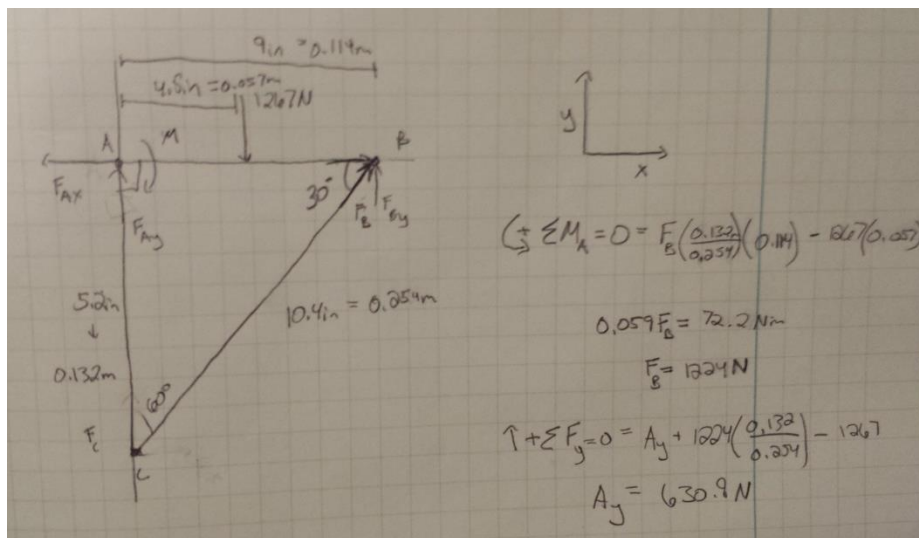 9in = 0.114m
4.5in = 0.057m
1267N
A
M
B
F_Ax
F_Ay
30°
F_B
F_By
5.2in
↓
0.132m
10.4in = 0.254m
60°
F_C
C
y
x
(+ ΣM_A = 0 = F_B(0.132/0.254)(0.114) - 1267(0.057)
0.059F_B = 72.2 Nm
F_B = 1224N
↑+ΣF_y=0 = A_y + 1224(0.132/0.254) - 1267
A_y = 630.9N